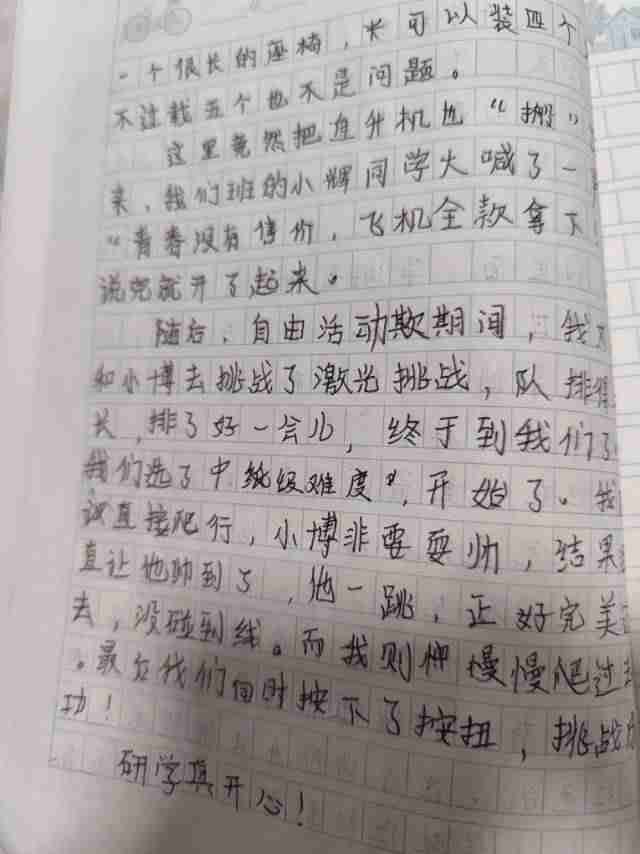 一个很长的座椅，长可以装四个
不过载五个也不是问题。
这里竟然把直升机也“搬”
来，我们班的小辉同学大喊了一
“青春没有售价，飞机全款拿下
说完就开了起来。
随后，自由活动欺期间，我
和小博去挑战了激光挑战，队排得
长，排了好一会儿，终于到我们了
我们选了中级难度”，开始了。我
议直接爬行，小博非要耍帅，结果
直让他帅到了，他一跳，正好完美
去，没碰到线。而我则慢慢爬过
。最后我们同时按下了按扭，挑战
功！
研学真开心！